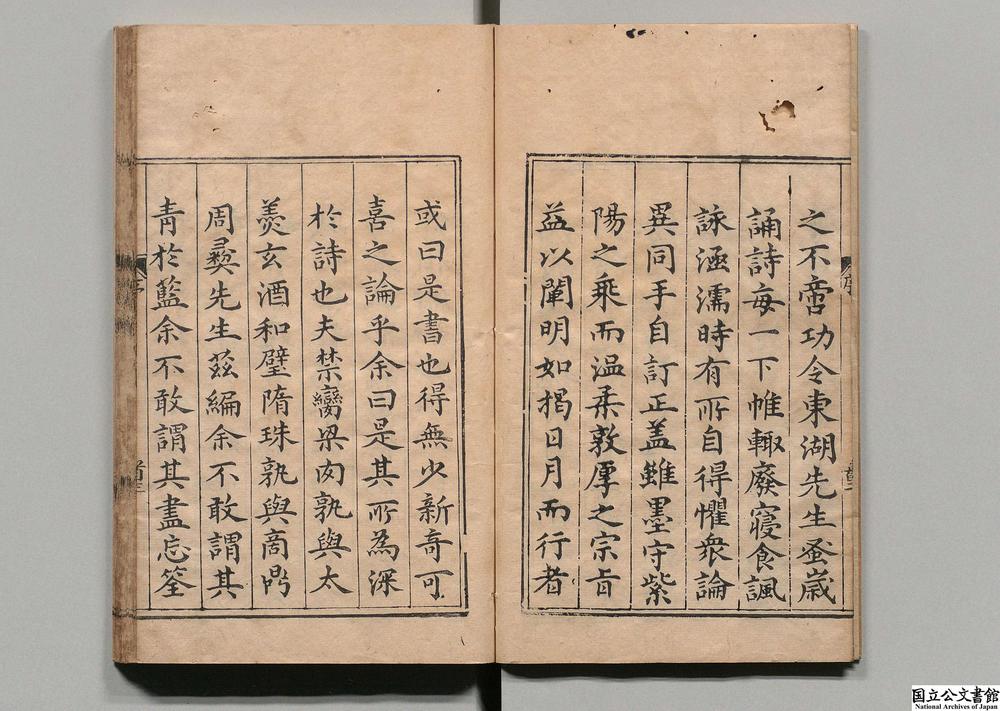 之不啻功令東湖先生蚤歲
誦詩每一下帷輙廢寢食諷
詠涵濡時有所自得懼衆論
異同手自訂正蓋雖墨守紫
陽之乘而溫柔敦厚之宗旨
益以闡明如揭日月而行者
或曰是書也得無少新奇可
喜之論乎余曰是其所為深
於詩也夫禁臠梁肉孰與太
羹玄酒和璧隋珠孰與商鼎
周彝先生茲編余不敢謂其
青於藍余不敢謂其盡忘筌
序
序
国立公文書館
National Archives of Japan